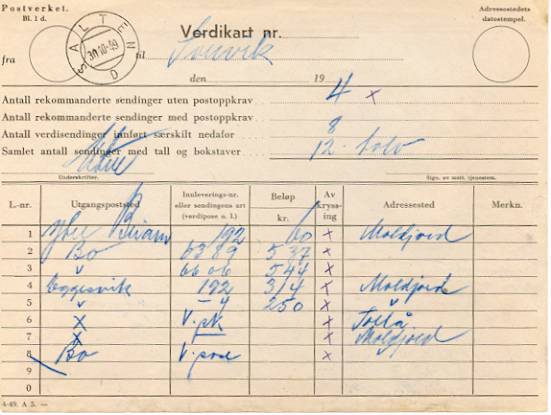 Postverket.
Bl. 1 d.
Verdikart nr.
Adressestedets
datostempel.
SALTEN
30 10-49
D
fra
til
den 19
Antall rekommanderte sendinger uten postoppkrav 4 x
Antall rekommanderte sendinger med postoppkrav
Antall verdisendinger innført særskilt nedafor 8
Samlet antall sendinger med tall og bokstaver 12. tolv
Underskrifter.
Sign. av mott. tjenestem.
L.-nr. Utgangspoststed Innleverings-nr. eller sendingens art (verdipose o. l.) Beløp kr. Av kryssing Adressested Merkn.
1 192 60 x Moldjord
2 Bo 6389 537 x
3 v 6606 544 x
4 Eggesvik 192 314 x Moldjord
5 v – 4 250 x v
6 x V. pk x Tollå
7 x x Moldjord
8 Bo V. pose x v
9
0
4-49. A 5. —